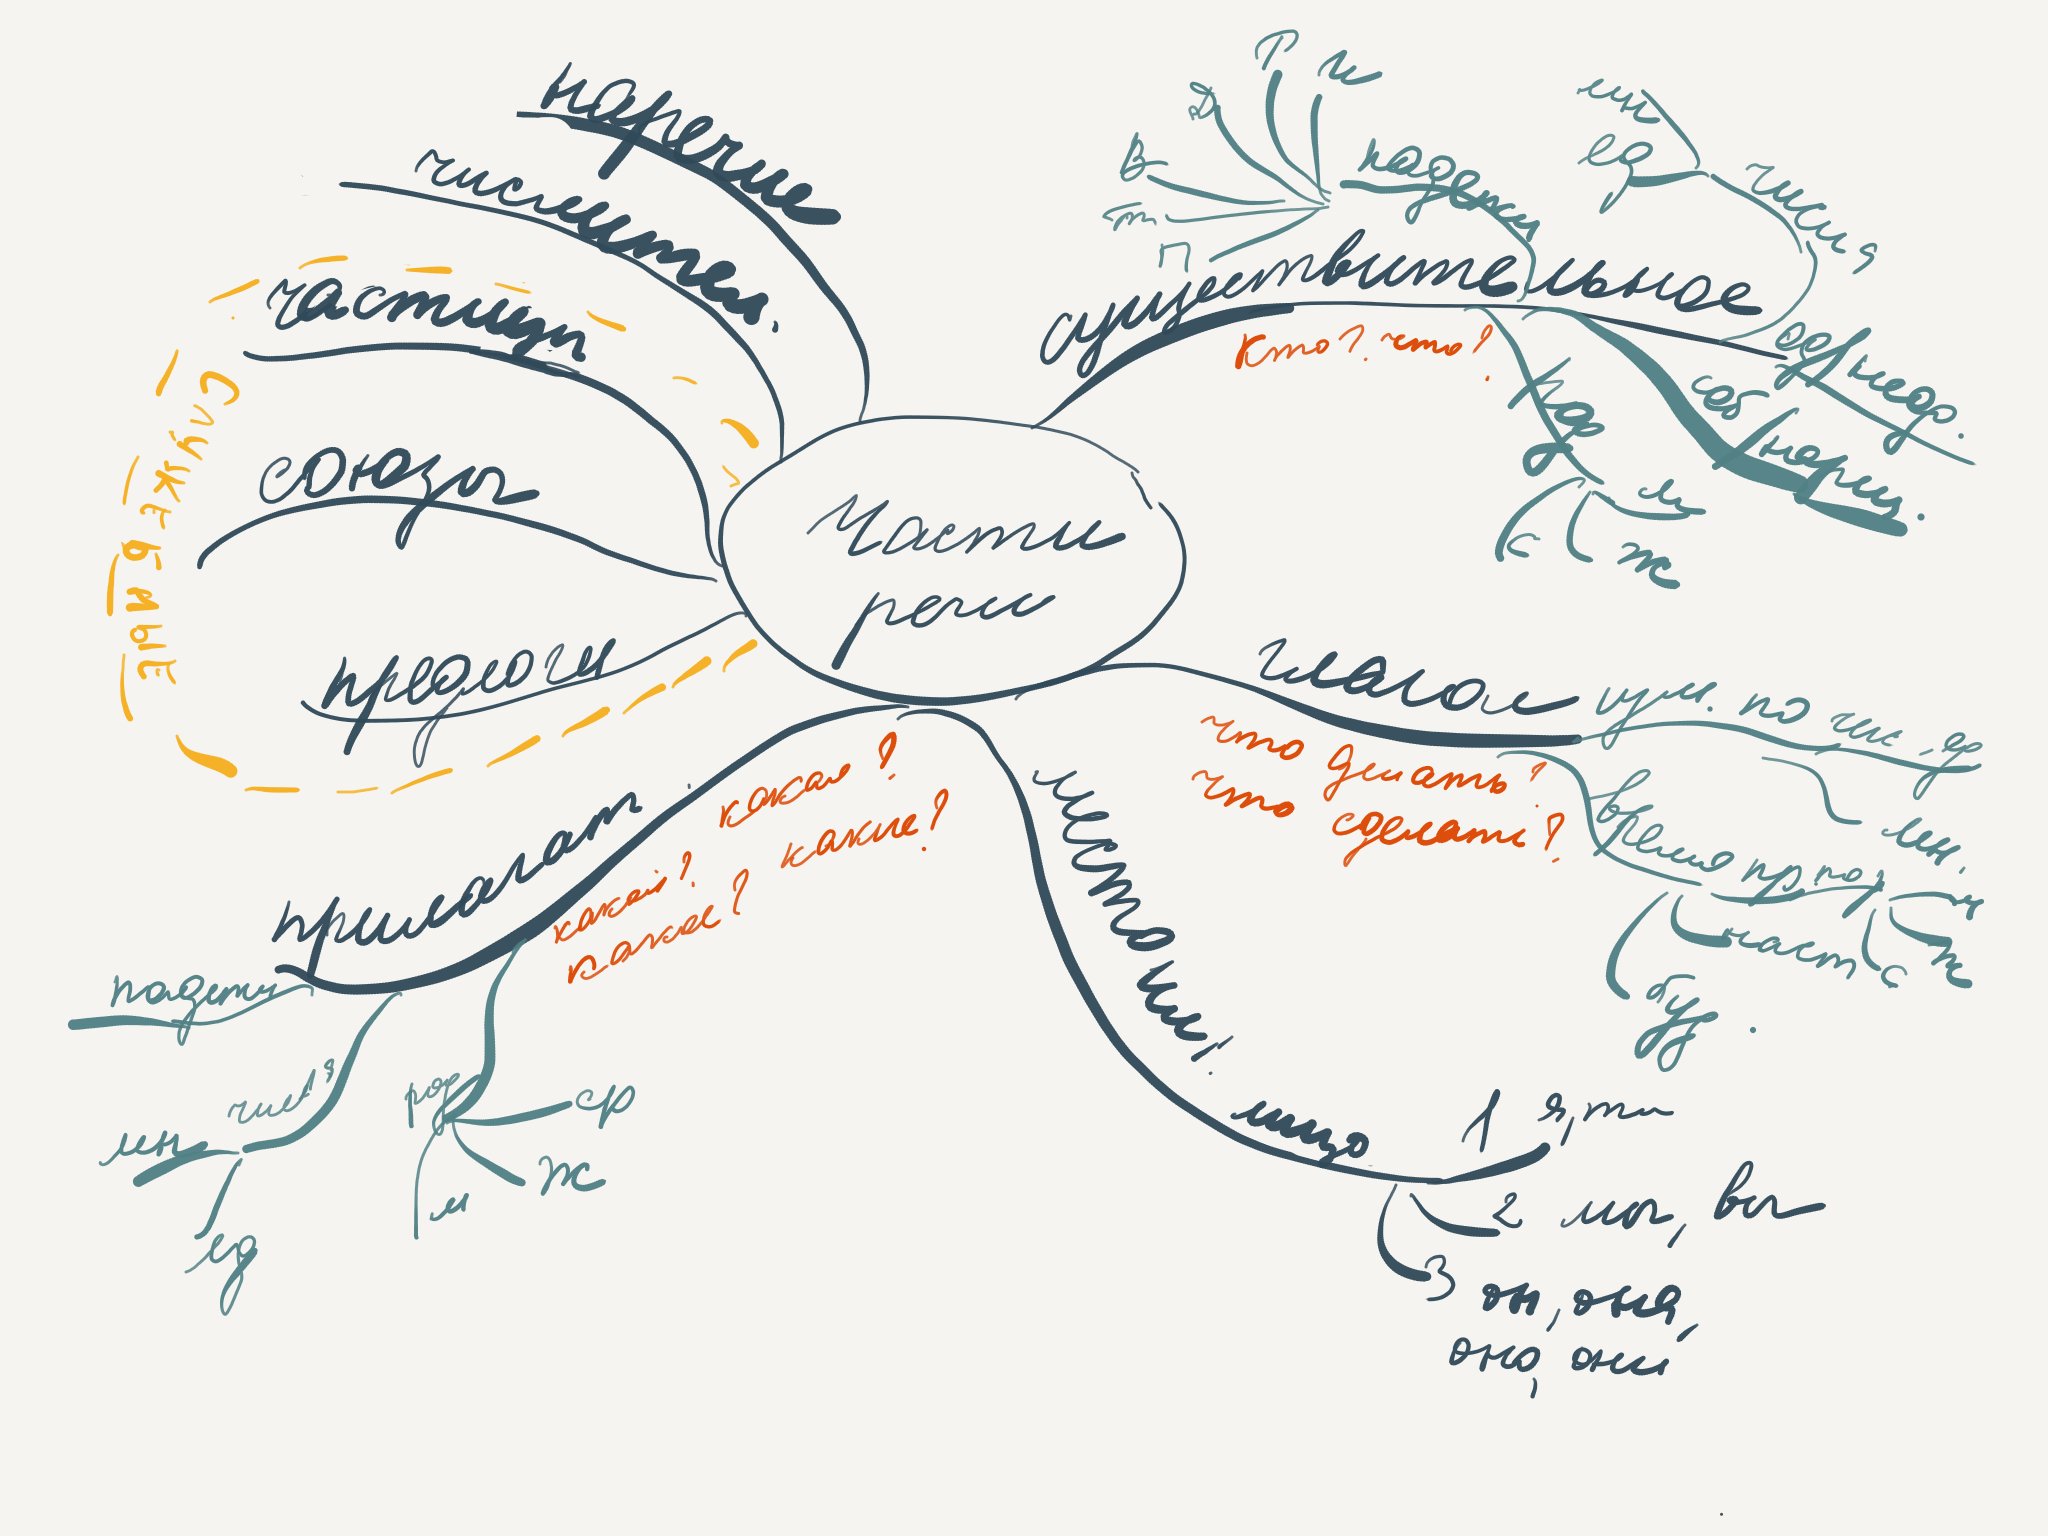 Части
речи
существительное
кто? что?
падежи
И
Р
Д
В
Т
П
числа
мн
ед
одуш неод.
соб нариц.
род
м
ж
с
глагол
что делать?
что сделать?
изм. по чис. ед
мн.
время пр. по р
м
ж
с
наст
буд.
местоим.
лицо
1 я, ты
2 мы, вы
3 он, она,
оно, они
прилагат.
какая?
какие?
какой?
какое?
падежи
числа
мн
ед
род
ср
ж
м
предлоги
союзы
частицы
СЛУЖЕБНЫЕ
числител.
наречие